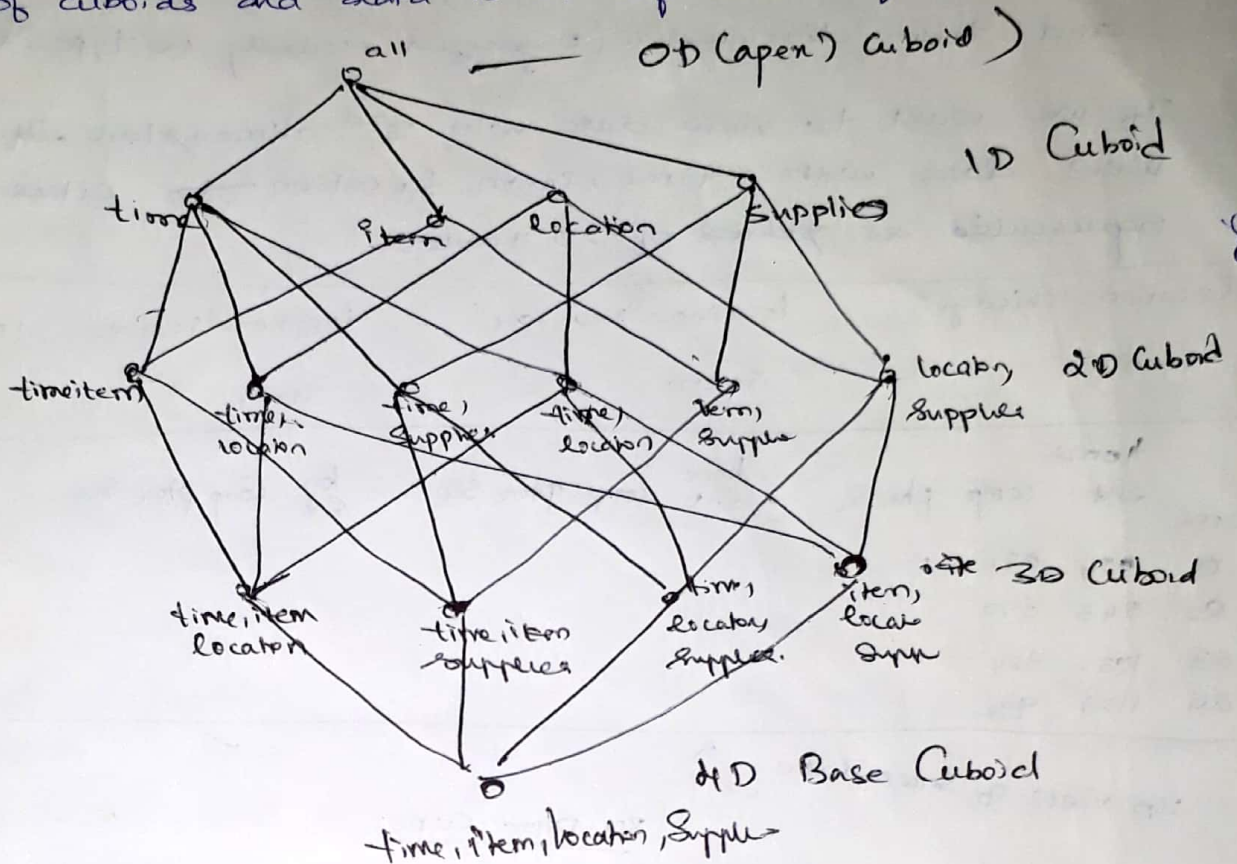 of cuboids and
all
0D (apex) Cuboid)
1D Cuboid
time
item
location
supplies
timeitem
time,
location
time,
supplies
time,
location
item,
supplie
location
supplies
2D Cuboid
time, item
location
time, item
supplies
time,
location,
supplies.
item,
locaio
supp
3D Cuboid
4D Base Cuboid
time, item, location, Supplie